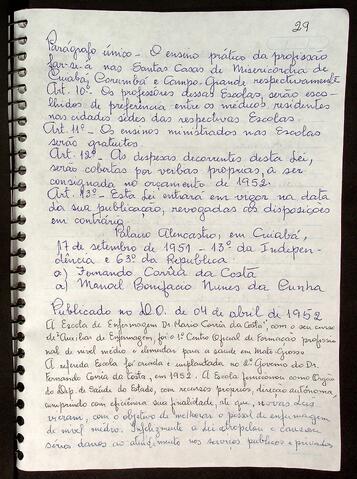 29
Parágrafo único - O ensino prático da profissão
far-se-á nas Santas Casas de Misericórdia de
Cuiabá, Corumbá e Campo-Grande respectivamente
Art. 10º - Os professores dessas Escolas, serão esco-
lhidos de preferência entre os médicos residentes
nas cidades sedes das respectivas Escolas.
Art. 11º - Os ensinos ministrados nas Escolas
serão gratuitos.
Art. 12º - As despesas decorrentes desta Lei,
serão cobertas por verbas próprias, a ser
consignada no orçamento de 1952.
Art. 13º - Esta Lei entrará em vigor na data
da sua publicação, revogadas as disposições
em contrário
Palácio Alencastro, em Cuiabá,
17 de setembro de 1951 - 13º da Indepen-
dência e 63º da República.
a) Fernando Corrêa da Costa
a) Manoel Bonifácio Nunes da Cunha
Publicado no D.O. de 04 de abril de 1952
A Escola de Enfermagem Dr. Mário Corrêa da Costa, com o seu curso
de Auxiliar de Enfermagem, foi o 1º Centro Oficial de Formação profissio-
nal de nível médio e elementar para a saúde em Mato Grosso
A referida Escola foi criada e implantada no 1º Governo do Dr.
Fernando Corrêa da Costa, em 1952. A Escola funcionou como Órgão
do Dep. de Saúde do Estado, com recursos próprios, direção autônoma,
cumprindo com eficiência sua finalidade, até que, novas Leis
vieram, com o objetivo de melhorar o pessoal de enfermagem
de nível médio. Infelizmente a Lei atropelou e causou
sérios danos ao atendimento nos serviços públicos e privados